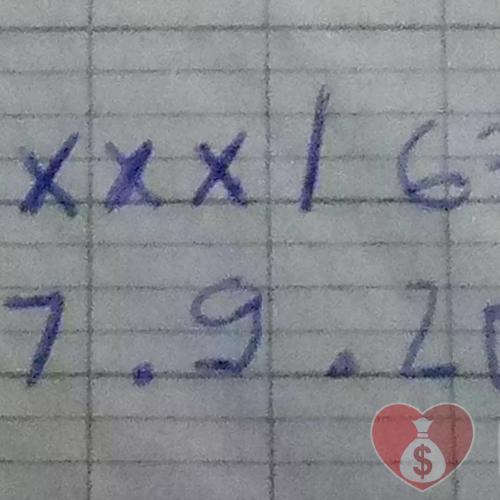 xxx/6
7.9.2